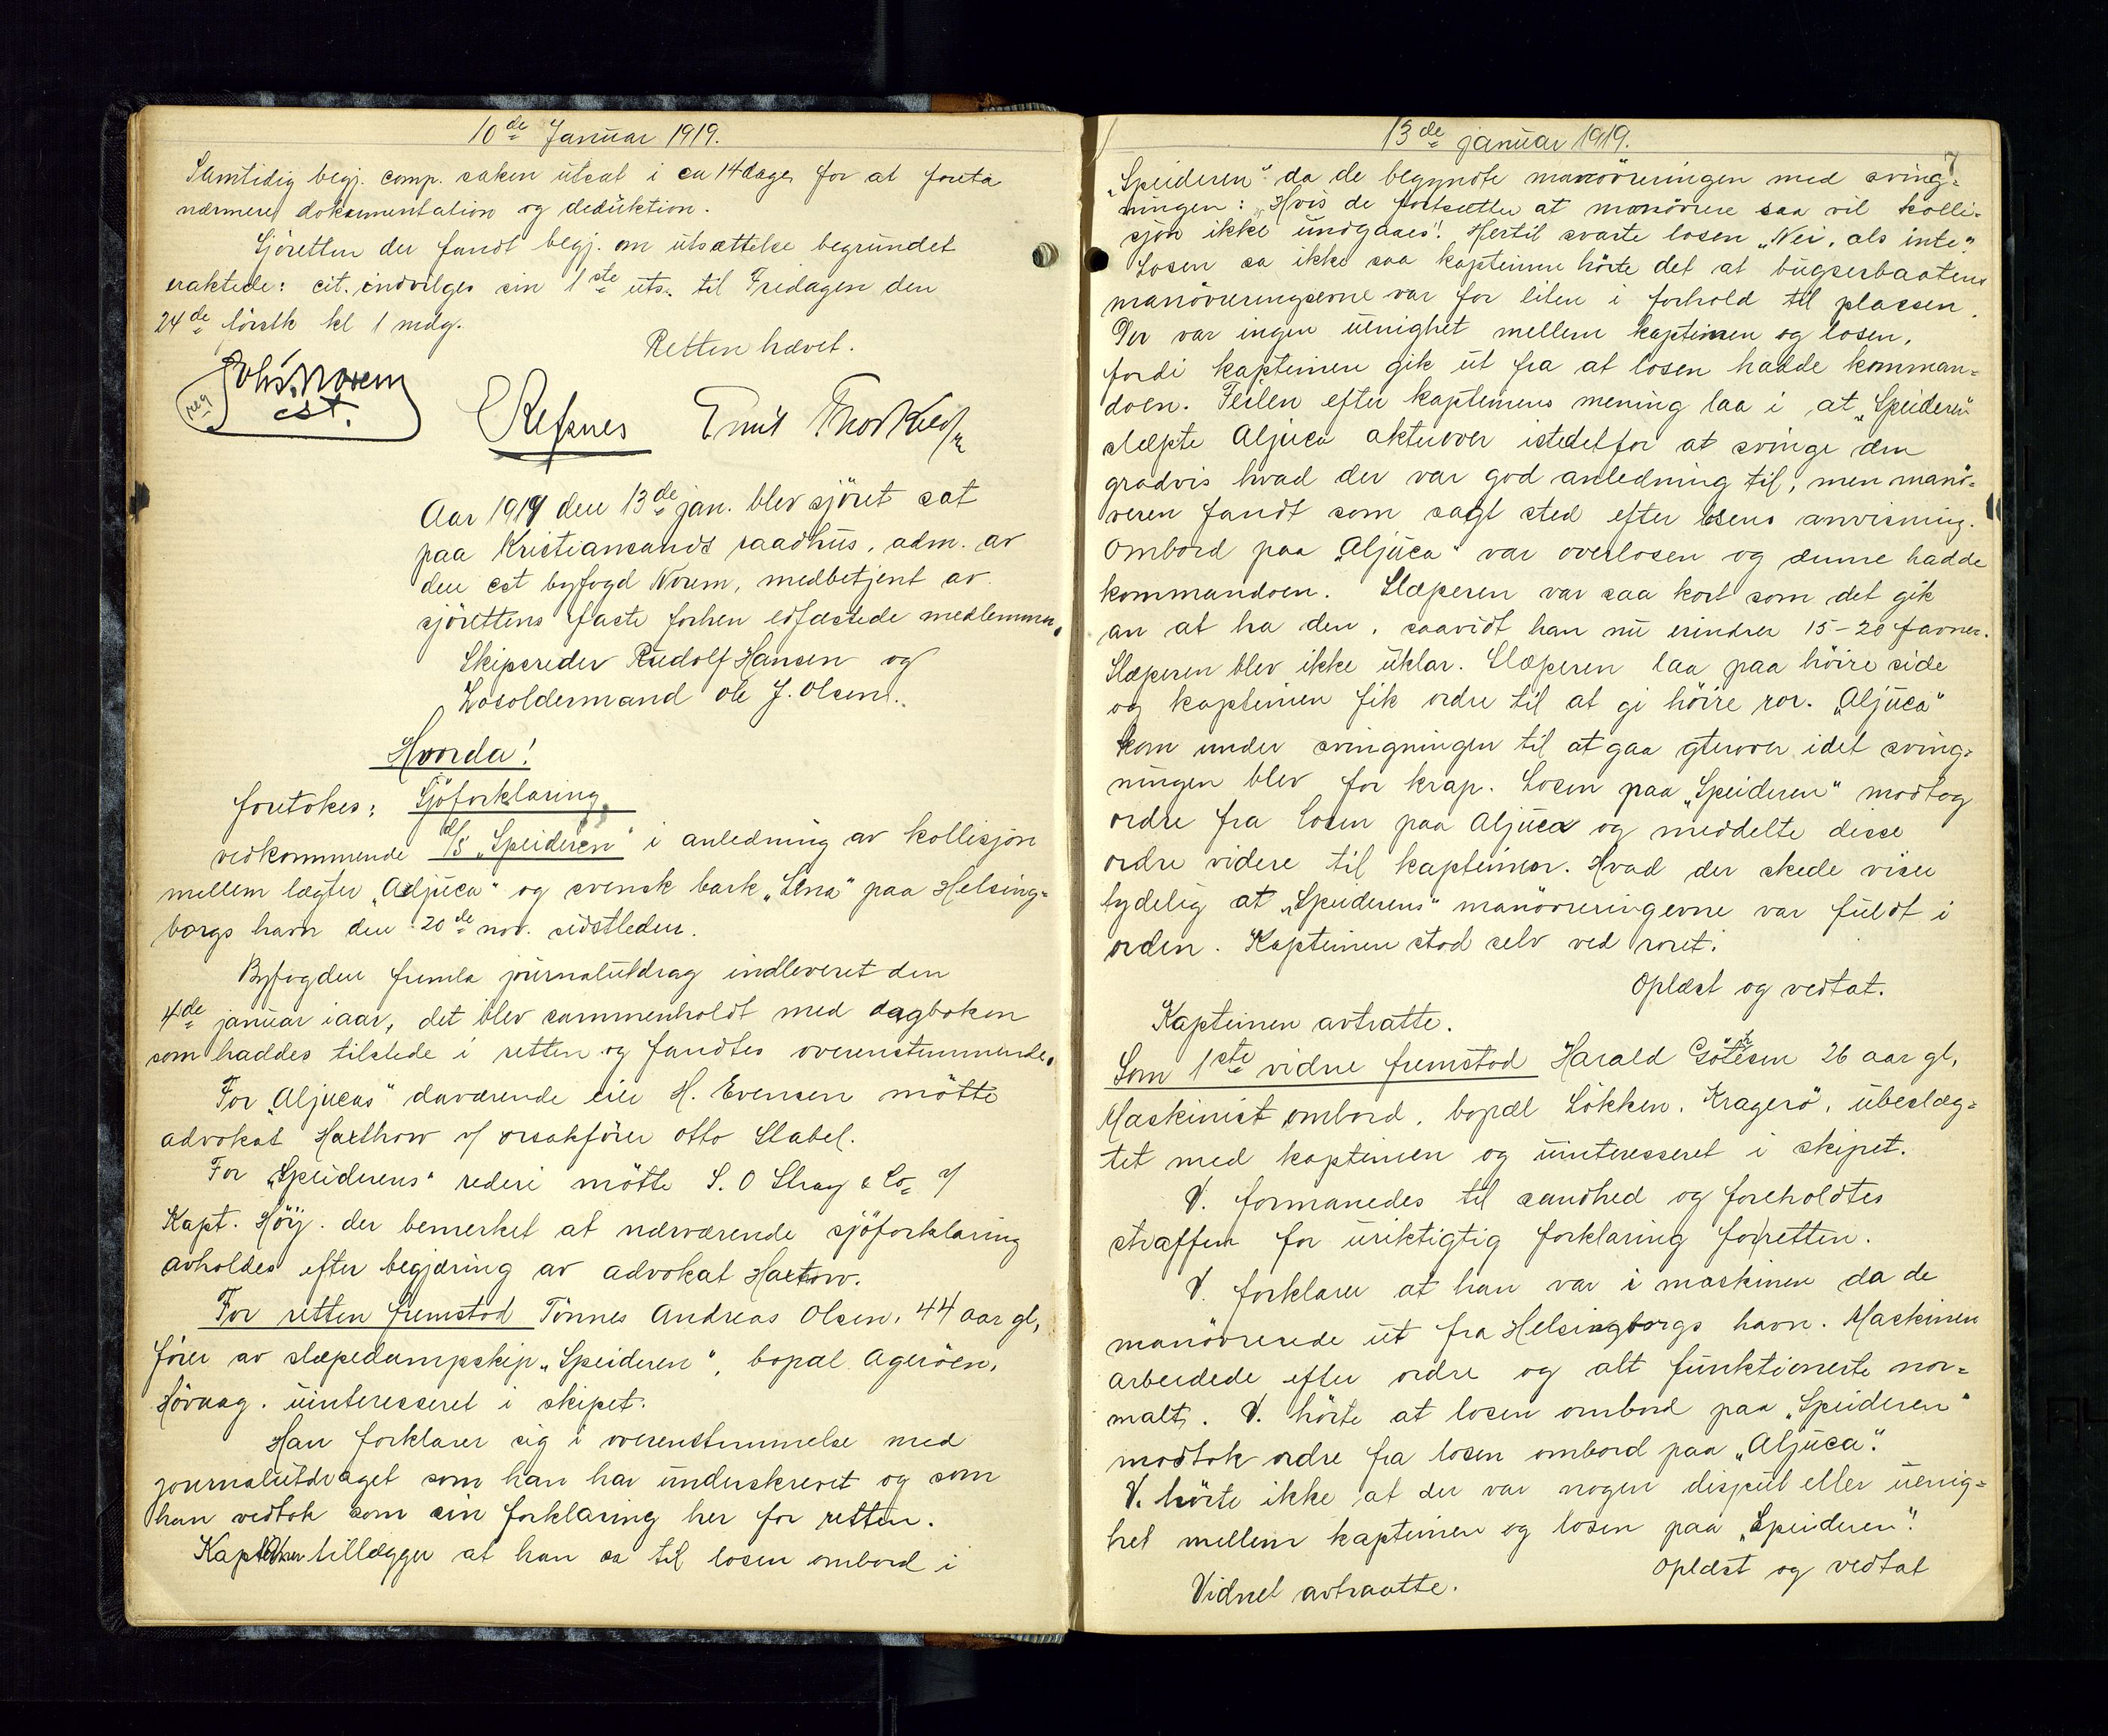 10de Januar 1919.
Samtidig begj. comp. saken utsat i ca 14 dager for at foreta
nærmere dokumentation og deduktion.
Sjöretten der fandt begj. om utsættelse begrundet
eraktede: cit. indvilges sin 1ste uts. til Fredagen den
24de förstk kl 1 mdg.
Retten hævet.
Johs. Norem
cst.
reg
Refsnes Emil
Aar 1919 den 13de jan. blev sjöret sat
paa Kristiansands raadhus, adm. av
den cst byfogd Norem, medbetjent av
sjörettens faste forhen edfæstede medlemmer,
Skipsreder Rudolf Hansen og
Losoldermand Ole J. Olsen.
Hvorda!
foretokes: Sjöforklaring
vedkommende d/s „Speideren" i anledning av kollisjon
mellem lægter „Aljuca" og svensk bark „Lena" paa Helsing=
borgs havn den 20de nov. sidstleden.
Byfogden fremla journalutdrag indleveret den
4de januar iaar, det blev sammenholdt med dagboken
som haddes tilstede i retten og fandtes overenstemmende.
For „Aljucas" daværende eier H. Evensen mötte
advokat Harthow v/ orsakförer Otto Stabel.
For „Speiderens" rederi mötte S. O Stray & Co v/
Kapt. Höij. der bemerket at nærværende sjöforklaring
avholdes efter begjæring av advokat Hartow.
For retten fremstod Tönnes Andreas Olsen, 44 aar gl,
förer av slæpedampskip „Speideren", bopæl Ageröen,
Hövaag. uinteresseret i skipet.
Han forklarer sig i overenstemmelse med
journalutdraget som han har underskrevet og som
han vedtok som sin forklaring her for retten.
Kapteinen tillægger at han sa til losen ombord i
13de januar 1919.
7
„Speideren" da de begyndte manövreringen med sving=
ningen: „Hvis de fortsætter at manövrere saa vil kolli=
sjon ikke undgaaes". Hertil svarte losen „Nei, als inte"
Losen sa ikke saa kapteinen hörte det at bugserbaatens
manövreringsevne var for liten i forhold til plassen.
Der var ingen uenighet mellem kapteinen og losen,
fordi kapteinen gik ut fra at losen hadde komman=
doen. Feilen efter kapteinens mening laa i at „Speideren"
slæpte Aljuca akterover istedetfor at svinge den
gradvis hvad der var god anledning til, men manö=
veren fandt som sagt sted efter losens anvisning.
Ombord paa „Aljuca" var overlosen og denne hadde
kommandoen. Slæperen var saa kort som det gik
an at ha den, saavidt han nu erindrer 15-20 favner.
Slæperen blev ikke uklar. Slæperen laa paa höire side
og kapteinen fik ordre til at gi höire ror. „Aljuca"
kom under svingningen til at gaa gterover idet sving=
ningen blev for krap. Losen paa „Speideren" modtog
ordre fra losen paa Aljuca og meddelte disse
ordre videre til kapteinen. Hvad der skede viser
tydelig at „Speiderens" manövreringevne var fuldt i
orden. Kapteinen stod selv ved roret.
Oplæst og vedtat.
Kapteinen avtratte.
Som 1ste vidne fremstod Harald 26 aar gl,
Maskinist ombord, bopæl Lökken, Kragerö, ubeslæg=
tet med kapteinen og uinteresseret i skipet.
V. formanedes til sandhed og foreholdtes
straffen for uriktigtig forklaring for retten.
V. forklarer at han var i maskinen da de
manövrerede ut fra Helsingborgs havn. Maskinen
arbeidede efter ordre og alt funktionerte nor=
malt. V. hörte at losen ombord paa „Speideren"
modtok ordre fra losen ombord paa „Aljuca".
V. hörte ikke at der var nogen disput eller uenig=
het mellem kapteinen og losen paa „Speideren".
Oplæst og vedtat
Vidnet avtraatte.